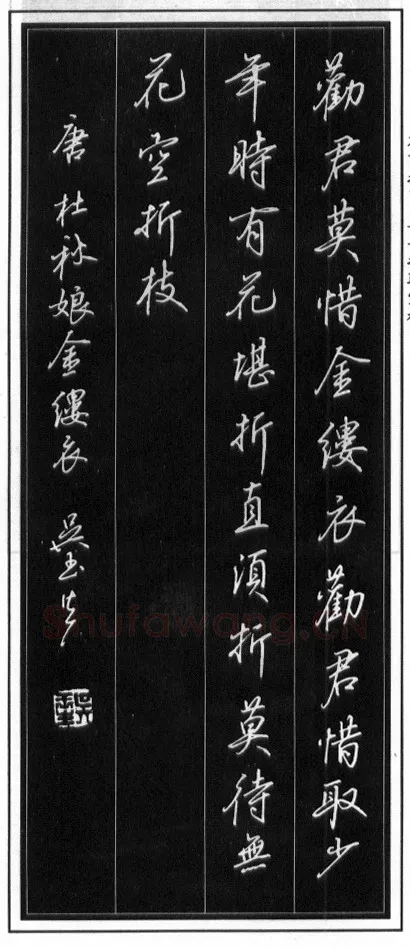 勸君莫惜金縷衣勸君惜取少
年時有花堪折直須折莫待無
花空折枝
唐杜秋娘金縷衣 吳玉生
Shufawang.CN